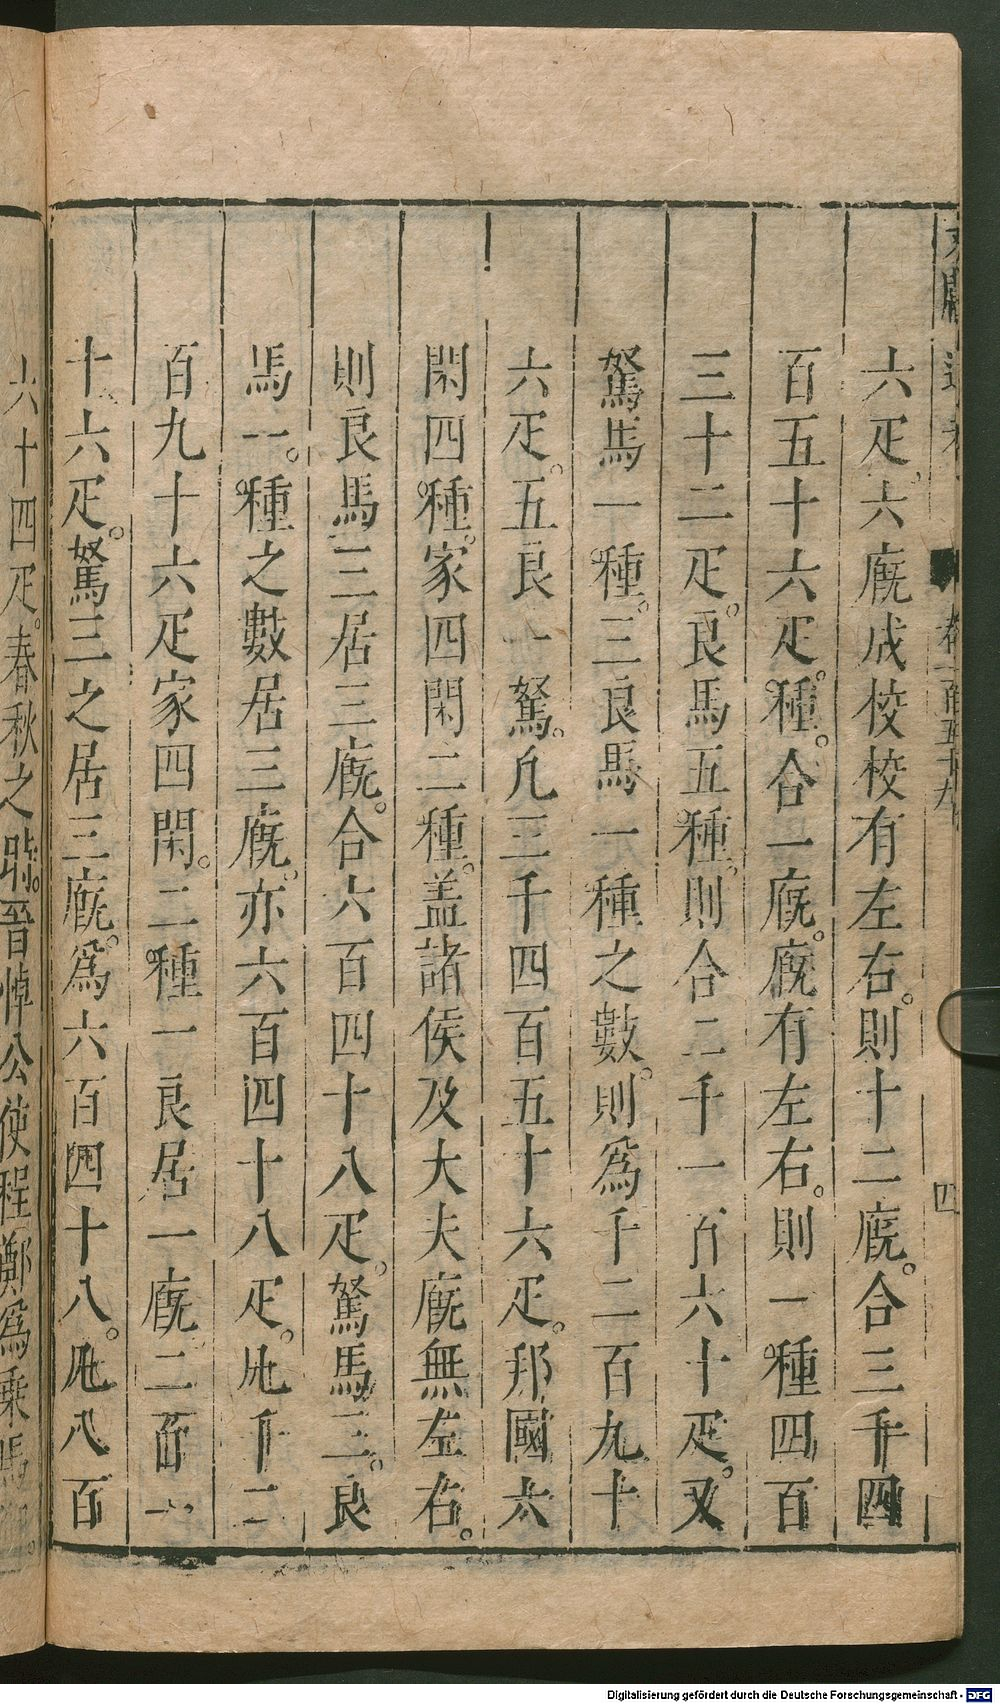 六疋。六廐成校校有左右。則十二廐。合三千四
百五十六疋。種。合一廐。廐有左右。則一種四百
三十二疋。良馬五種。則合二千一百六十疋。又
駑馬一種。三良馬一種之數。則爲千二百九十
六疋。五良一駑。凢三千四百五十六疋。邦國六
閑四種。家四閑二種。盖諸侯及大夫廐無左右。
則良馬三居三廐。合六百四十八疋。駑馬三。良
馬一。種之數居三廐。亦六百四十八疋。凢千二
百九十六疋家四閑。二種一良居一廐二百一
十六疋。駑三之居三廐。爲六百四十八。凢八百
六十四疋。春秋之時。晉悼公使程鄭爲乗馬
卷一百五十九
四
Digitalisierung gefördert durch die Deutsche Forschungsgemeinschaft - DFG